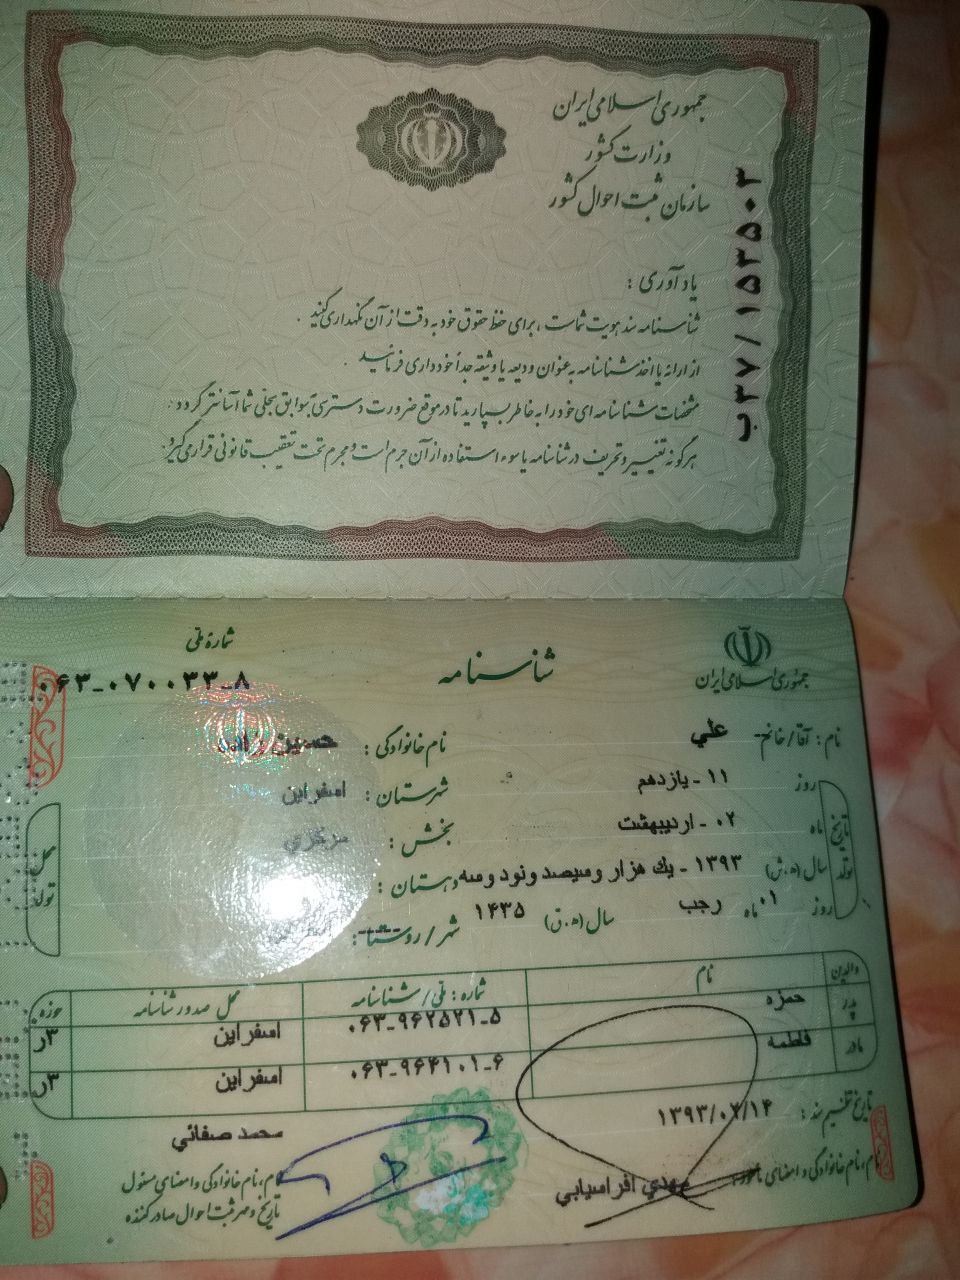 جمهوری اسلامی ایران
وزارت کشور
سازمان ثبت احوال کشور
ب۳۷/۱۵۳۵۰۳
یادآوری :
شناسنامه سند هویت شماست ، برای حفظ حقوق خود به دقت از آن نگهداری کنید .
از ارائه یا اخذ شناسنامه به عنوان ودیعه یا وثیقه جداً خودداری فرمائید .
مشخصات شناسنامه ای خود را به خاطر بسپارید تا در موقع ضرورت دسترسی به سوابق سجلی شما آسانتر گردد .
هرگونه تغییر و تحریف در شناسنامه یا سوء استفاده از آن جرم است و مجرم تحت تعقیب قانونی قرار می گیرد .
جمهوری اسلامی ایران
شناسنامه
شماره ملی
۰۶۳-۰۷۰۰۳۳-۸
نام : آقا/خانم علي
نام خانوادگی : حسين زاده
تاریخ تولد
روز ۱۱ - يازدهم
ماه ۰۲ - ارديبهشت
سال (ه.ش) ۱۳۹۳ - يك هزار وسيصد ونود وسه
روز ۰۱ ماه رجب سال (ه.ق) ۱۴۳۵
محل تولد
شهرستان : اسفراين
بخش : مركزي
دهستان :
شهر / روستا :
والدین نام شماره : ملی / شناسنامه محل صدور شناسنامه حوزه
پدر حمزه ۰۶۳-۹۶۲۵۲۱-۵ اسفراين ۳ر
مادر فاطمه ۰۶۳-۹۶۴۱۰۱-۶ اسفراين ۳ر
تاریخ تنظیم سند : ۱۳۹۳/۰۲/۱۴
نام ، نام خانوادگی و امضای مامور : مهدي افراسيابي
محمد صفائي
نام ، نام خانوادگی و امضای مسئول
تاریخ و مهر ثبت احوال صادر کننده